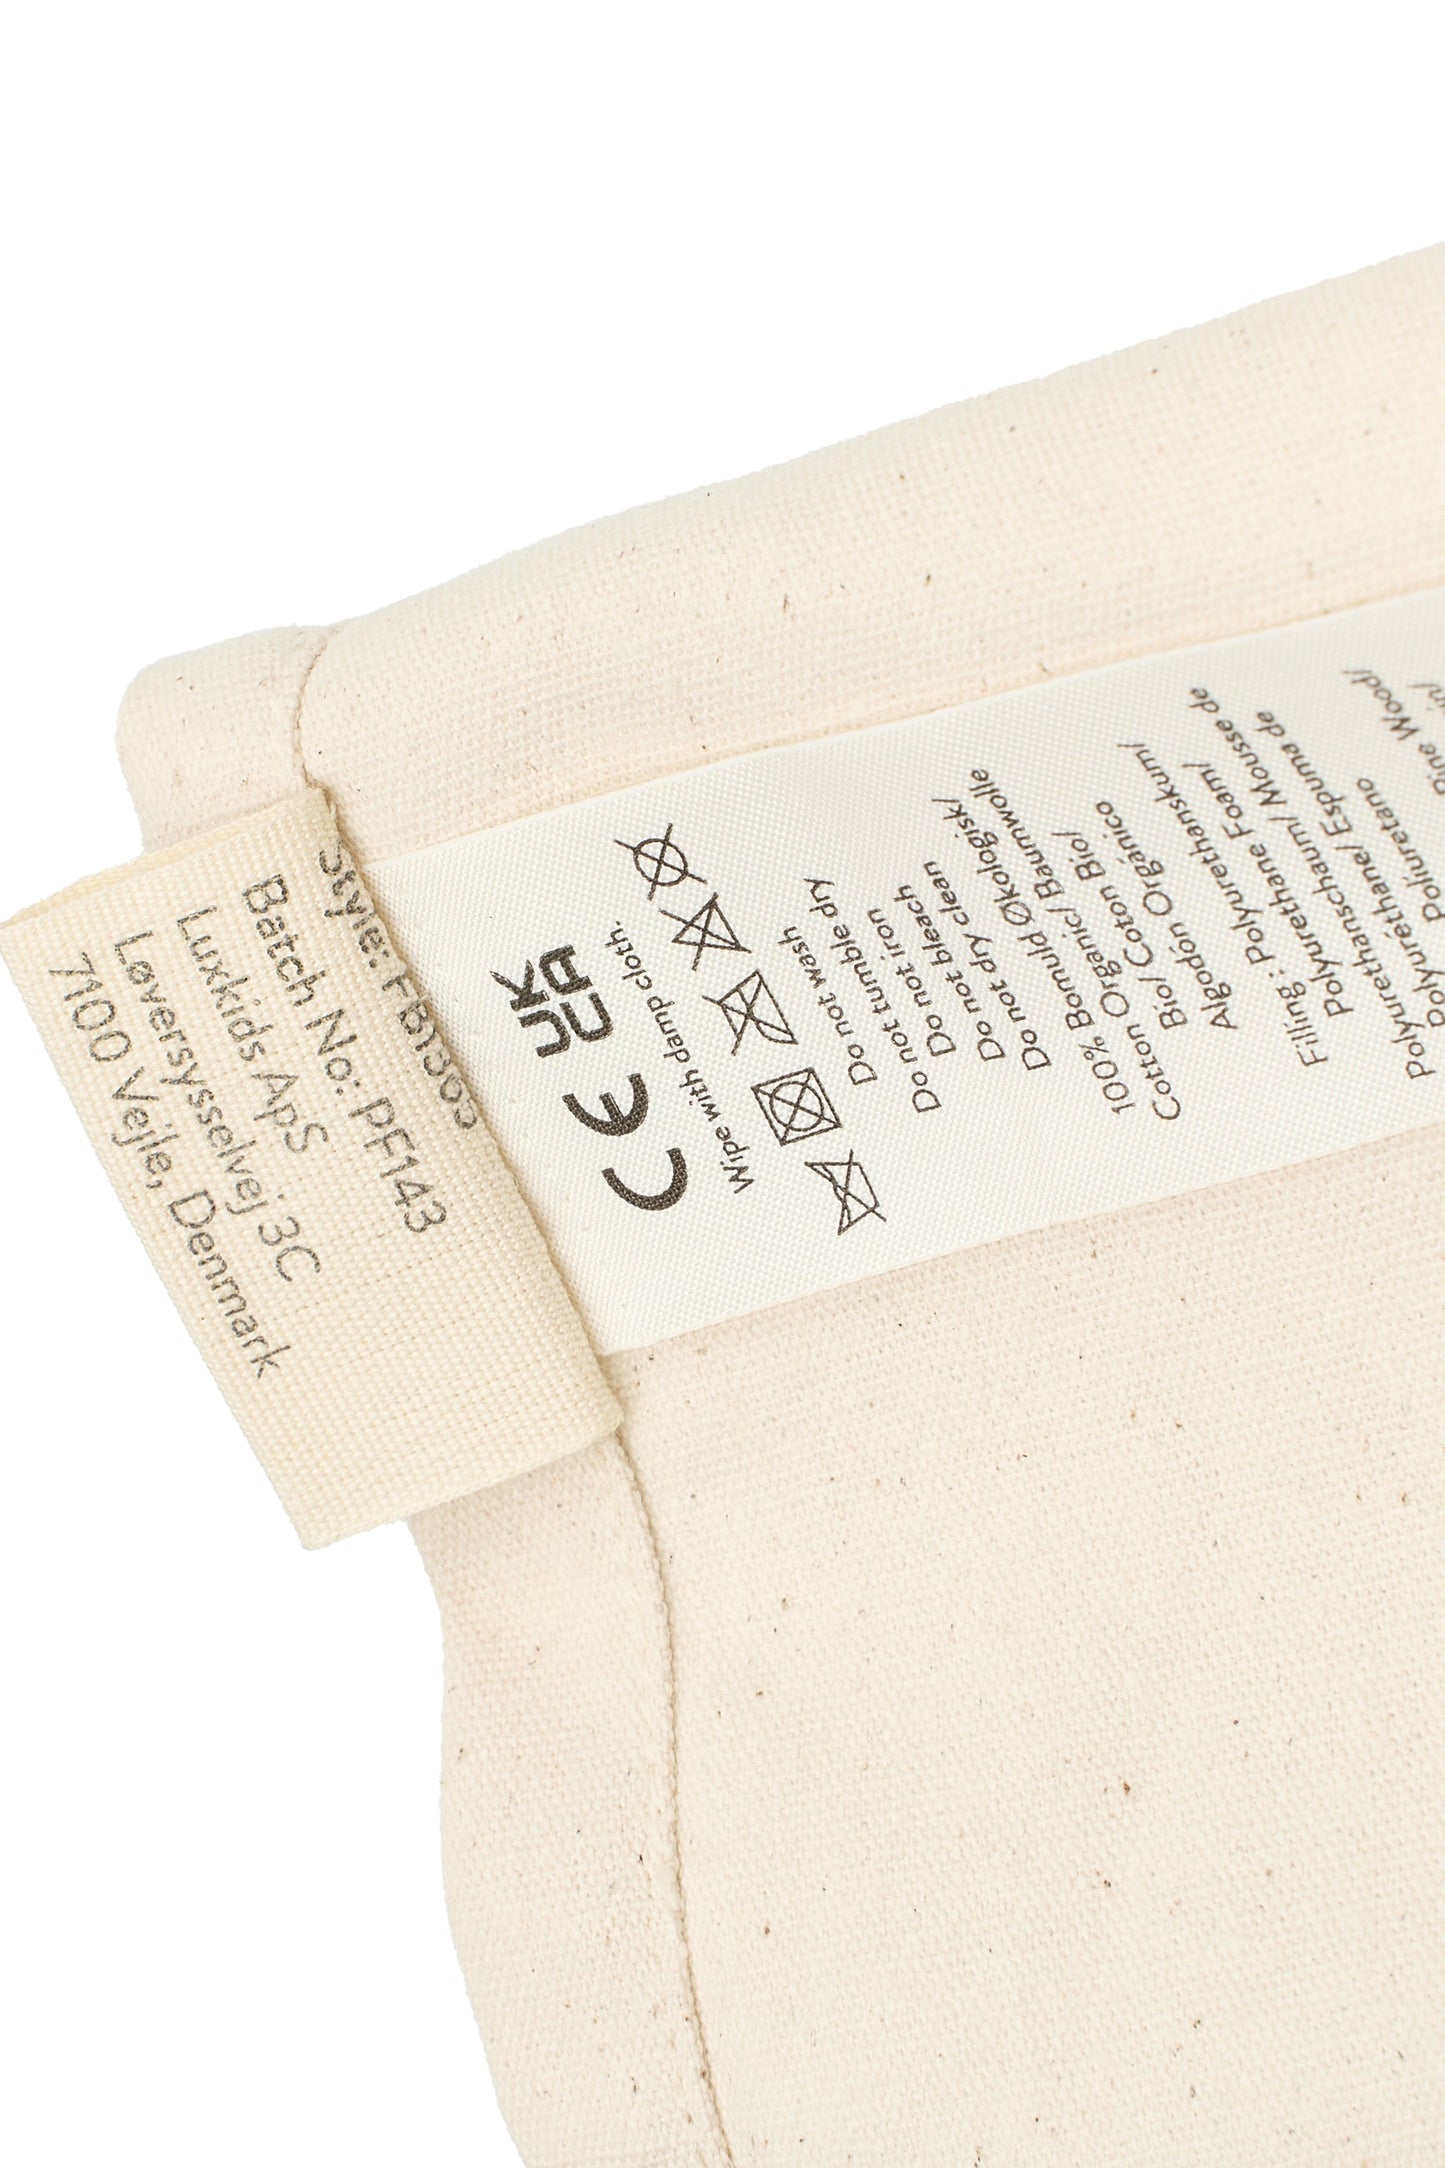 Batch No: PF143
Luxkids ApS
Løversysselvej 3C
7100 Vejle, Denmark
CE UK CA
Wipe with damp cloth.
Do not wash
Do not tumble dry
Do not iron
Do not bleach
Do not dry clean
100% Bomuld Økologisk/
Cotton Organic/ Baumwolle
Bio/ Coton Bio/
Algodón Orgánico
Filling: Polyurethanskum/
Polyurethane Foam/
Polyurethanschaum/ Mousse de
Polyuréthane/ Espuma de
Poliuretano
Pine Wood/